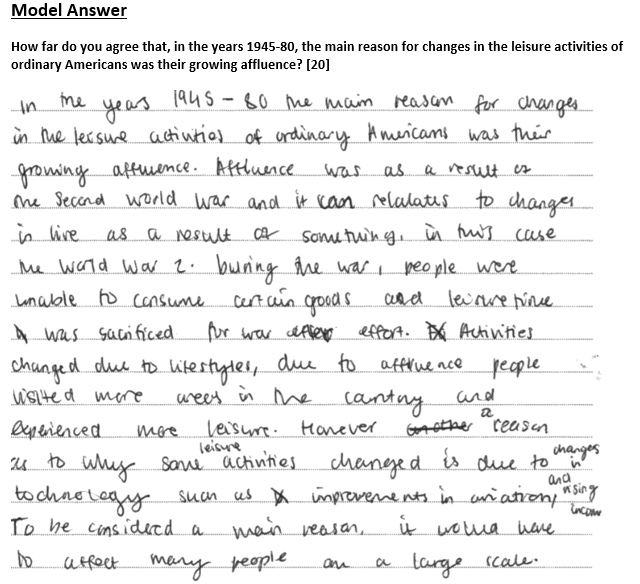 Model Answer
How far do you agree that, in the years 1945-80, the main reason for changes in the leisure activities of
ordinary Americans was their growing affluence? [20]
In the years 1945 - 80 the main reason for changes
in the leisure activities of ordinary Americans was their
growing affluence. Affluence was as a result of
the Second world war and it can relalates to changes
in live as a result of something, in this case
the world war 2. During the war, people were
unable to consume certain goods and leisure time
was sacrificed for war effort. Activities
changed due to lifestyles, due to affluence people
visited more areas in the country and
experienced more leisure. However a reason
as to why some leisure activities changed is due to changes in
technology such as improvements in aviation, and rising income
To be considerd a main reason, it would have
to affect many people on a large scale.